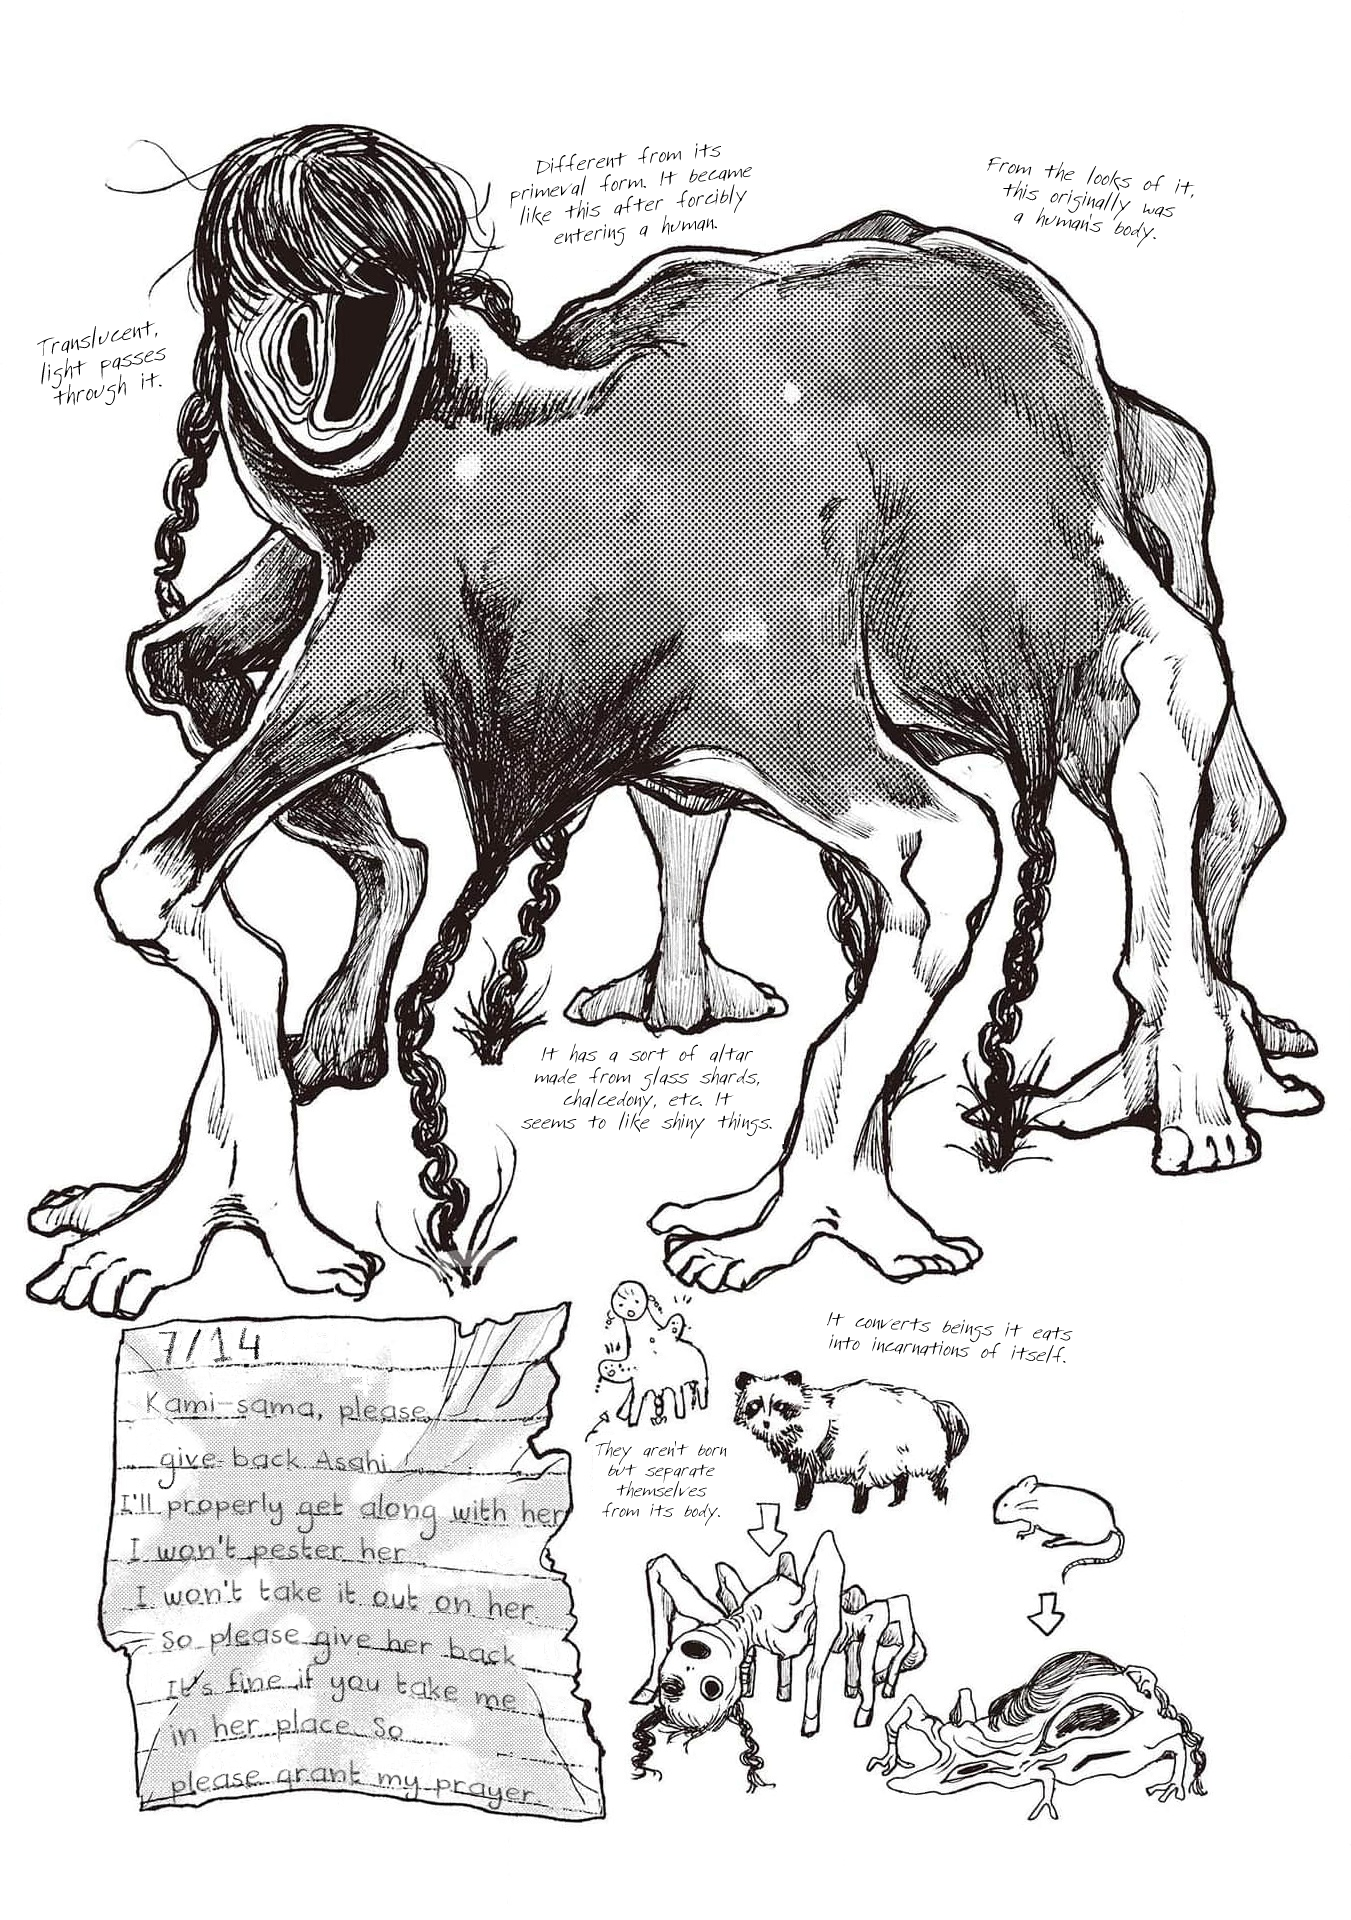 Different from its
primeval form. It became
like this after forcibly
entering a human.
From the looks of it,
this originally was
a human's body.
Translucent,
light passes
through it.
It has a sort of altar
made from glass shards,
chalcedony, etc. It
seems to like shiny things.
7/14
Kami-sama, please
give back Asahi
I'll properly get along with her
I won't pester her
I won't take it out on her
So please give her back
It's fine if you take me
in her place. So
please grant my prayer.
They aren't born
but separate
themselves
from its body.
It converts beings it eats
into incarnations of itself.